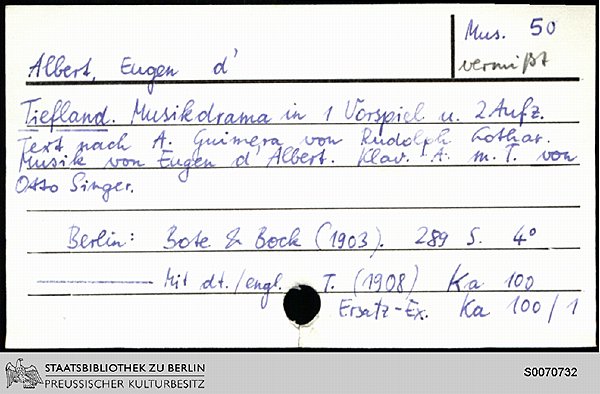 Mus. 50
Albert, Eugen d'
vermißt
Tiefland. Musikdrama in 1 Vorspiel u. 2 Aufz.
Text nach A. Guimera von Rudolph Lothar.
Musik von Eugen d'Albert. Klav. A. m. T. von
Otto Singer.
Berlin: Bote & Bock (1903). 289 S. 4°
——— Mit dt./engl. T. (1908) Ka 100
Ersatz-Ex. Ka 100/1
STAATSBIBLIOTHEK ZU BERLIN
PREUSSISCHER KULTURBESITZ
S0070732